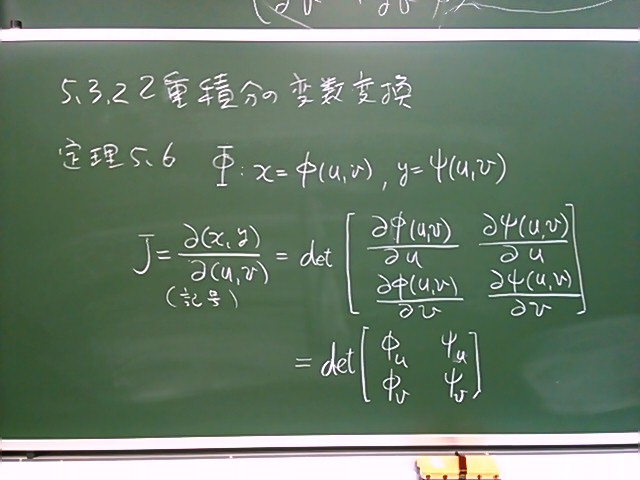 5.3.2 2重積分の変数変換
定理5.6 Φ: x=φ(u,v), y=ψ(u,v)
J = ∂(x,y)/∂(u,v) = det [ ∂φ(u,v)/∂u ∂ψ(u,v)/∂u
∂φ(u,v)/∂v ∂ψ(u,v)/∂v ]
(記号)
= det [ φu ψu
φv ψv ]